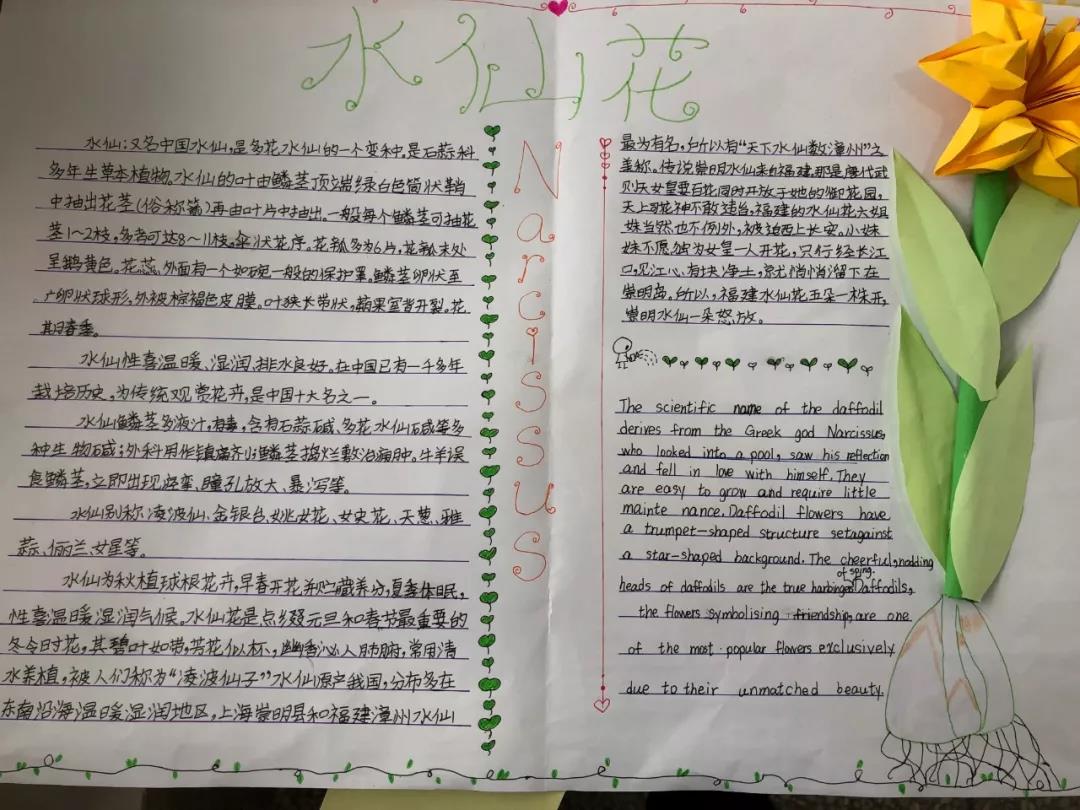 水仙花
水仙:又名中国水仙,是多花水仙的一个变种。是石蒜科
多年生草本植物。水仙的叶由鳞茎顶端绿白色筒状鞘
中抽出花茎(俗称箭)再由叶片中抽出。一般每个鳞茎可抽花
茎1~2枝,多者可达8~11枝,伞状花序。花瓣多为6片,花瓣末处
呈鹅黄色。花蕊外面有一个如碗一般的保护罩。鳞茎卵状至
广卵状球形,外被棕褐色皮膜。叶狭长带状,蒴果室背开裂。花
期春季。
水仙性喜温暖、湿润、排水良好。在中国已有一千多年
栽培历史,为传统观赏花卉,是中国十大名之一。
水仙鳞茎多液汁,有毒,含有石蒜碱、多花水仙碱等多
种生物碱;外科用作镇痛剂;鳞茎捣烂敷治痈肿。牛羊误
食鳞茎,立即出现痉挛、瞳孔放大、暴泻等。
水仙别称凌波仙、金银台、姚女花、女史花、天葱、雅
蒜、俪兰、女星等。
水仙为秋植球根花卉,早春开花并贮藏养分,夏季休眠,
性喜温暖湿润气候。水仙花是点缀元旦和春节最重要的
冬令时花,其碧叶如带,芳花似杯,幽香沁人肺腑,常用清
水养植,被人们称为“凌波仙子”水仙原产我国,分布多在
东南沿海温暖湿润地区,上海崇明县和福建漳州水仙
Narcissus
最为有名,所以有“天下水仙数漳州”之
美称。传说崇明水仙来自福建,那是唐代武
则天女皇要百花同时开放于她的御花园,
天上司花神不敢违旨,福建的水仙花六姐
妹当然也不例外,被迫西上长安。小妹
妹不愿独为女皇一人开花,只行经长江
口,见江心有块净土,就悄悄溜下在
崇明岛。所以,福建水仙花五朵一株开,
崇明水仙一朵怒放。
The scientific name of the daffodil
derives from the Greek god Narcissus,
who looked into a pool, saw his reflection
and fell in love with himself. They
are easy to grow and require little
mainte nance. Daffodil flowers have
a trumpet-shaped structure setagainst
a star-shaped background. The cheerful,nodding
heads of daffodils are the true harbingers of spring. Daffodils,
the flowers symbolising friendship, are one
of the most popular flowers exclusively
due to their unmatched beauty.